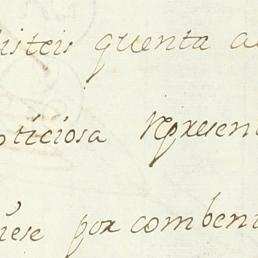 disteis quenta a
oticiosa represen
iese por combeni